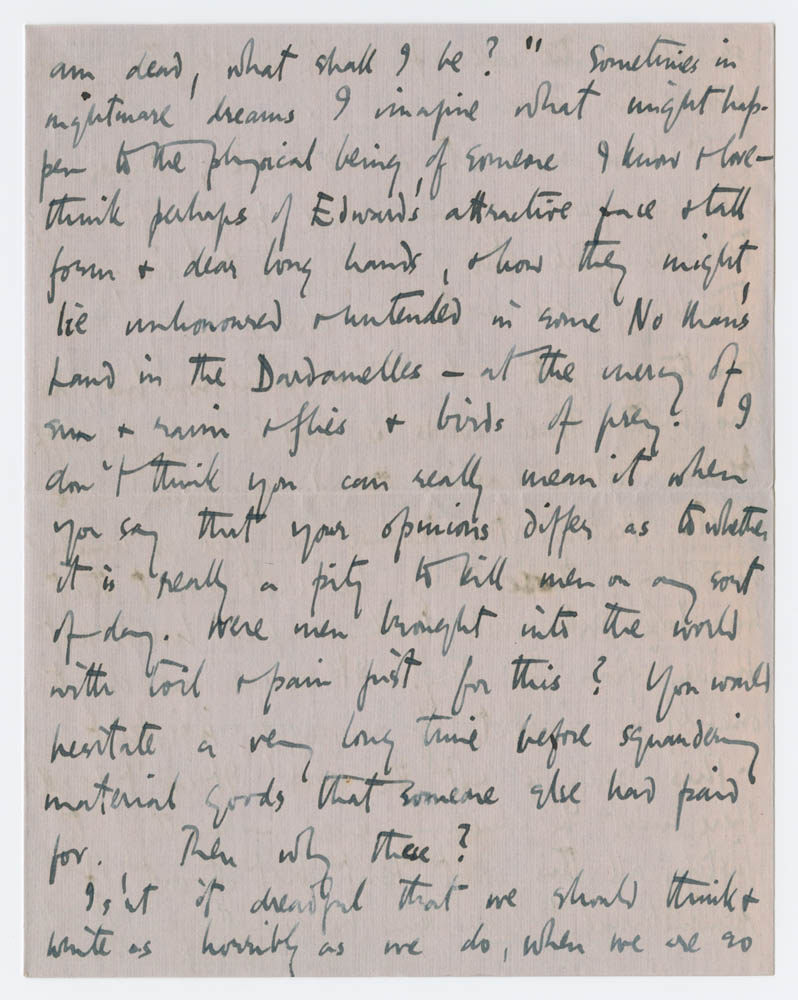 am dead, what shall I be?" Sometimes in
nightmare dreams I imagine what might hap-
pen to the physical being, of someone I know & love -
think perhaps of Edward's attractive face & tall
form & dear long hands, & how they might
lie unhonoured & untended in some No Man's
Land in the Dardanelles - at the mercy of
sun & rain & flies & birds of prey. I
don't think you can really mean it when
you say that your opinions differ as to whether
it is really a pity to kill men on any sort
of day. Were men brought into the world
with toil & pain just for this? You would
hesitate a very long time before squandering
material goods that someone else had paid
for. Then why these?
Is'nt it dreadful that we should think &
write as horribly as we do, when we are so